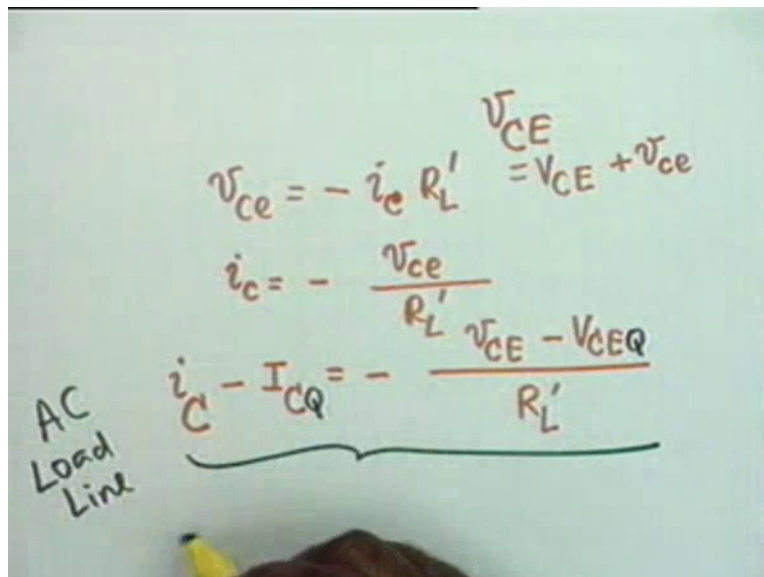 v_CE
= V_CE + v_ce
v_ce = - i_c R_L'
i_c = - v_ce / R_L'
i_C - I_CQ = - (v_CE - V_CEQ) / R_L'
AC
Load
Line